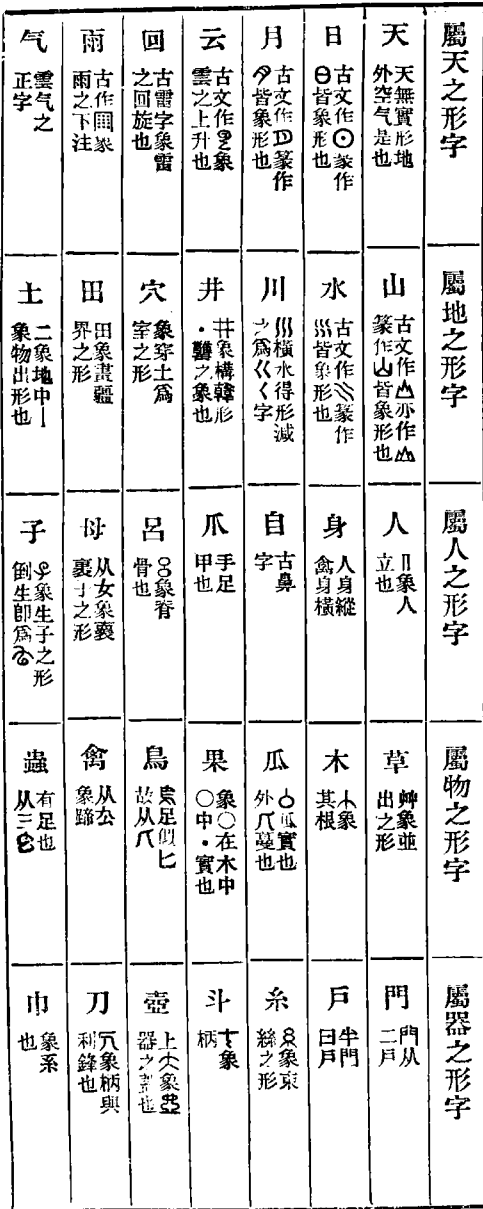 屬天之形字
天
天無實形地
外空气是也
日
古文作⊙篆作
日皆象形也
月
古文作篆作
皆象形也
云
古文作象
雲之上升也
回
古靁字象雷
之回旋也
雨
古作象
雨之下注
气
雲气之
正字
屬地之形字
山
古文作亦作
篆作山皆象形也
水
古文作篆作
皆象形也
川
巛橫水得形減
之爲巜く字
井
井象構韓形
・罋之象也
穴
象穿土爲
室之形
田
田象畫疆
界之形
土
二象地中丨
象物出形也
屬人之形字
人
象人
立也
身
人身縱
禽身橫
自
古鼻
字
爪
手足
甲也
呂
象脊
骨也
母
从女象褱
子之形
子
象生子之形
倒生卽爲
屬物之形字
草
艸象並
出之形
木
象
其根
瓜
瓜實也
外蔓也
果
象○在木中
○中・實也
鳥
鳥足似匕
故从
禽
从厹
象蹄
蟲
有足也
从三
屬器之形字
門
門从
二戶
戶
半門
曰戶
糸
象束
絲之形
斗
象
柄
壺
上大象
器之蓋也
刀
象柄與
利鋒也
巾
象系
也